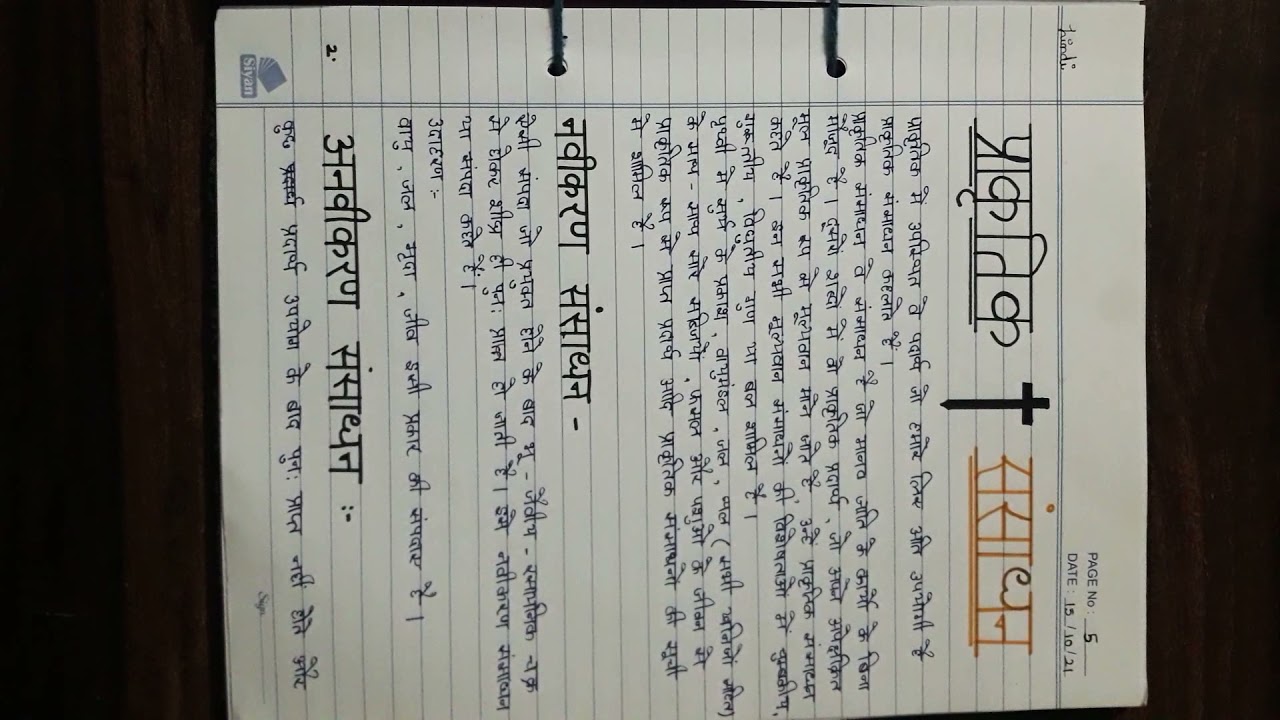 Hindi
PAGE No: 5
DATE: 15/10/21
प्रकृतिक संसाधन
प्राकृतिक में उपस्थित वे पदार्थ जो हमारे लिए अति उपयोगी है
प्राकृतिक संसाधन कहलाते हैं।
प्राकृतिक संसाधन वे संसाधन है जो मानव जाति के कार्यों के बिना
मौजूद है। दूसरे शब्दों में वे प्राकृतिक पदार्थ, जो अपने अपेक्षाकृत
मूल प्राकृतिक रूप में मूल्यवान माने जाते है, उन्हें प्राकृतिक संसाधन
कहते है। इन सभी मूल्यवान संसाधनों की विशेषताओं में चुम्बकीय,
गुरुत्वीय, विद्युतीय गुण या बल शामिल है।
पृथ्वी में सूर्य के प्रकाश, वायुमंडल, जल, थल (सभी खनिजों सहित)
के साथ-साथ सारे सब्जियों, फसल और पशुओं के जीवन से
प्राकृतिक रूप से प्राप्त पदार्थ आदि प्राकृतिक संसाधनो की सूची
में शामिल है।
नवीकरण संसाधन -
ऐसी संपदा जो प्रयुक्त होने के बाद भू-जैवीय-रसायनिक चक्र
से होकर शीघ्र ही पुन: प्राप्त हो जाती है। इसे नवीकरण संसाधन
या संपदा कहते हैं।
उदाहरण:-
वायु, जल, मृदा, जीव इसी प्रकार की संपदाए है।
2.
अनवीकरण संसाधन :-
कुछ पदार्थ उपयोग के बाद पुन: प्राप्त नहीं होते और
Siyan
Sign